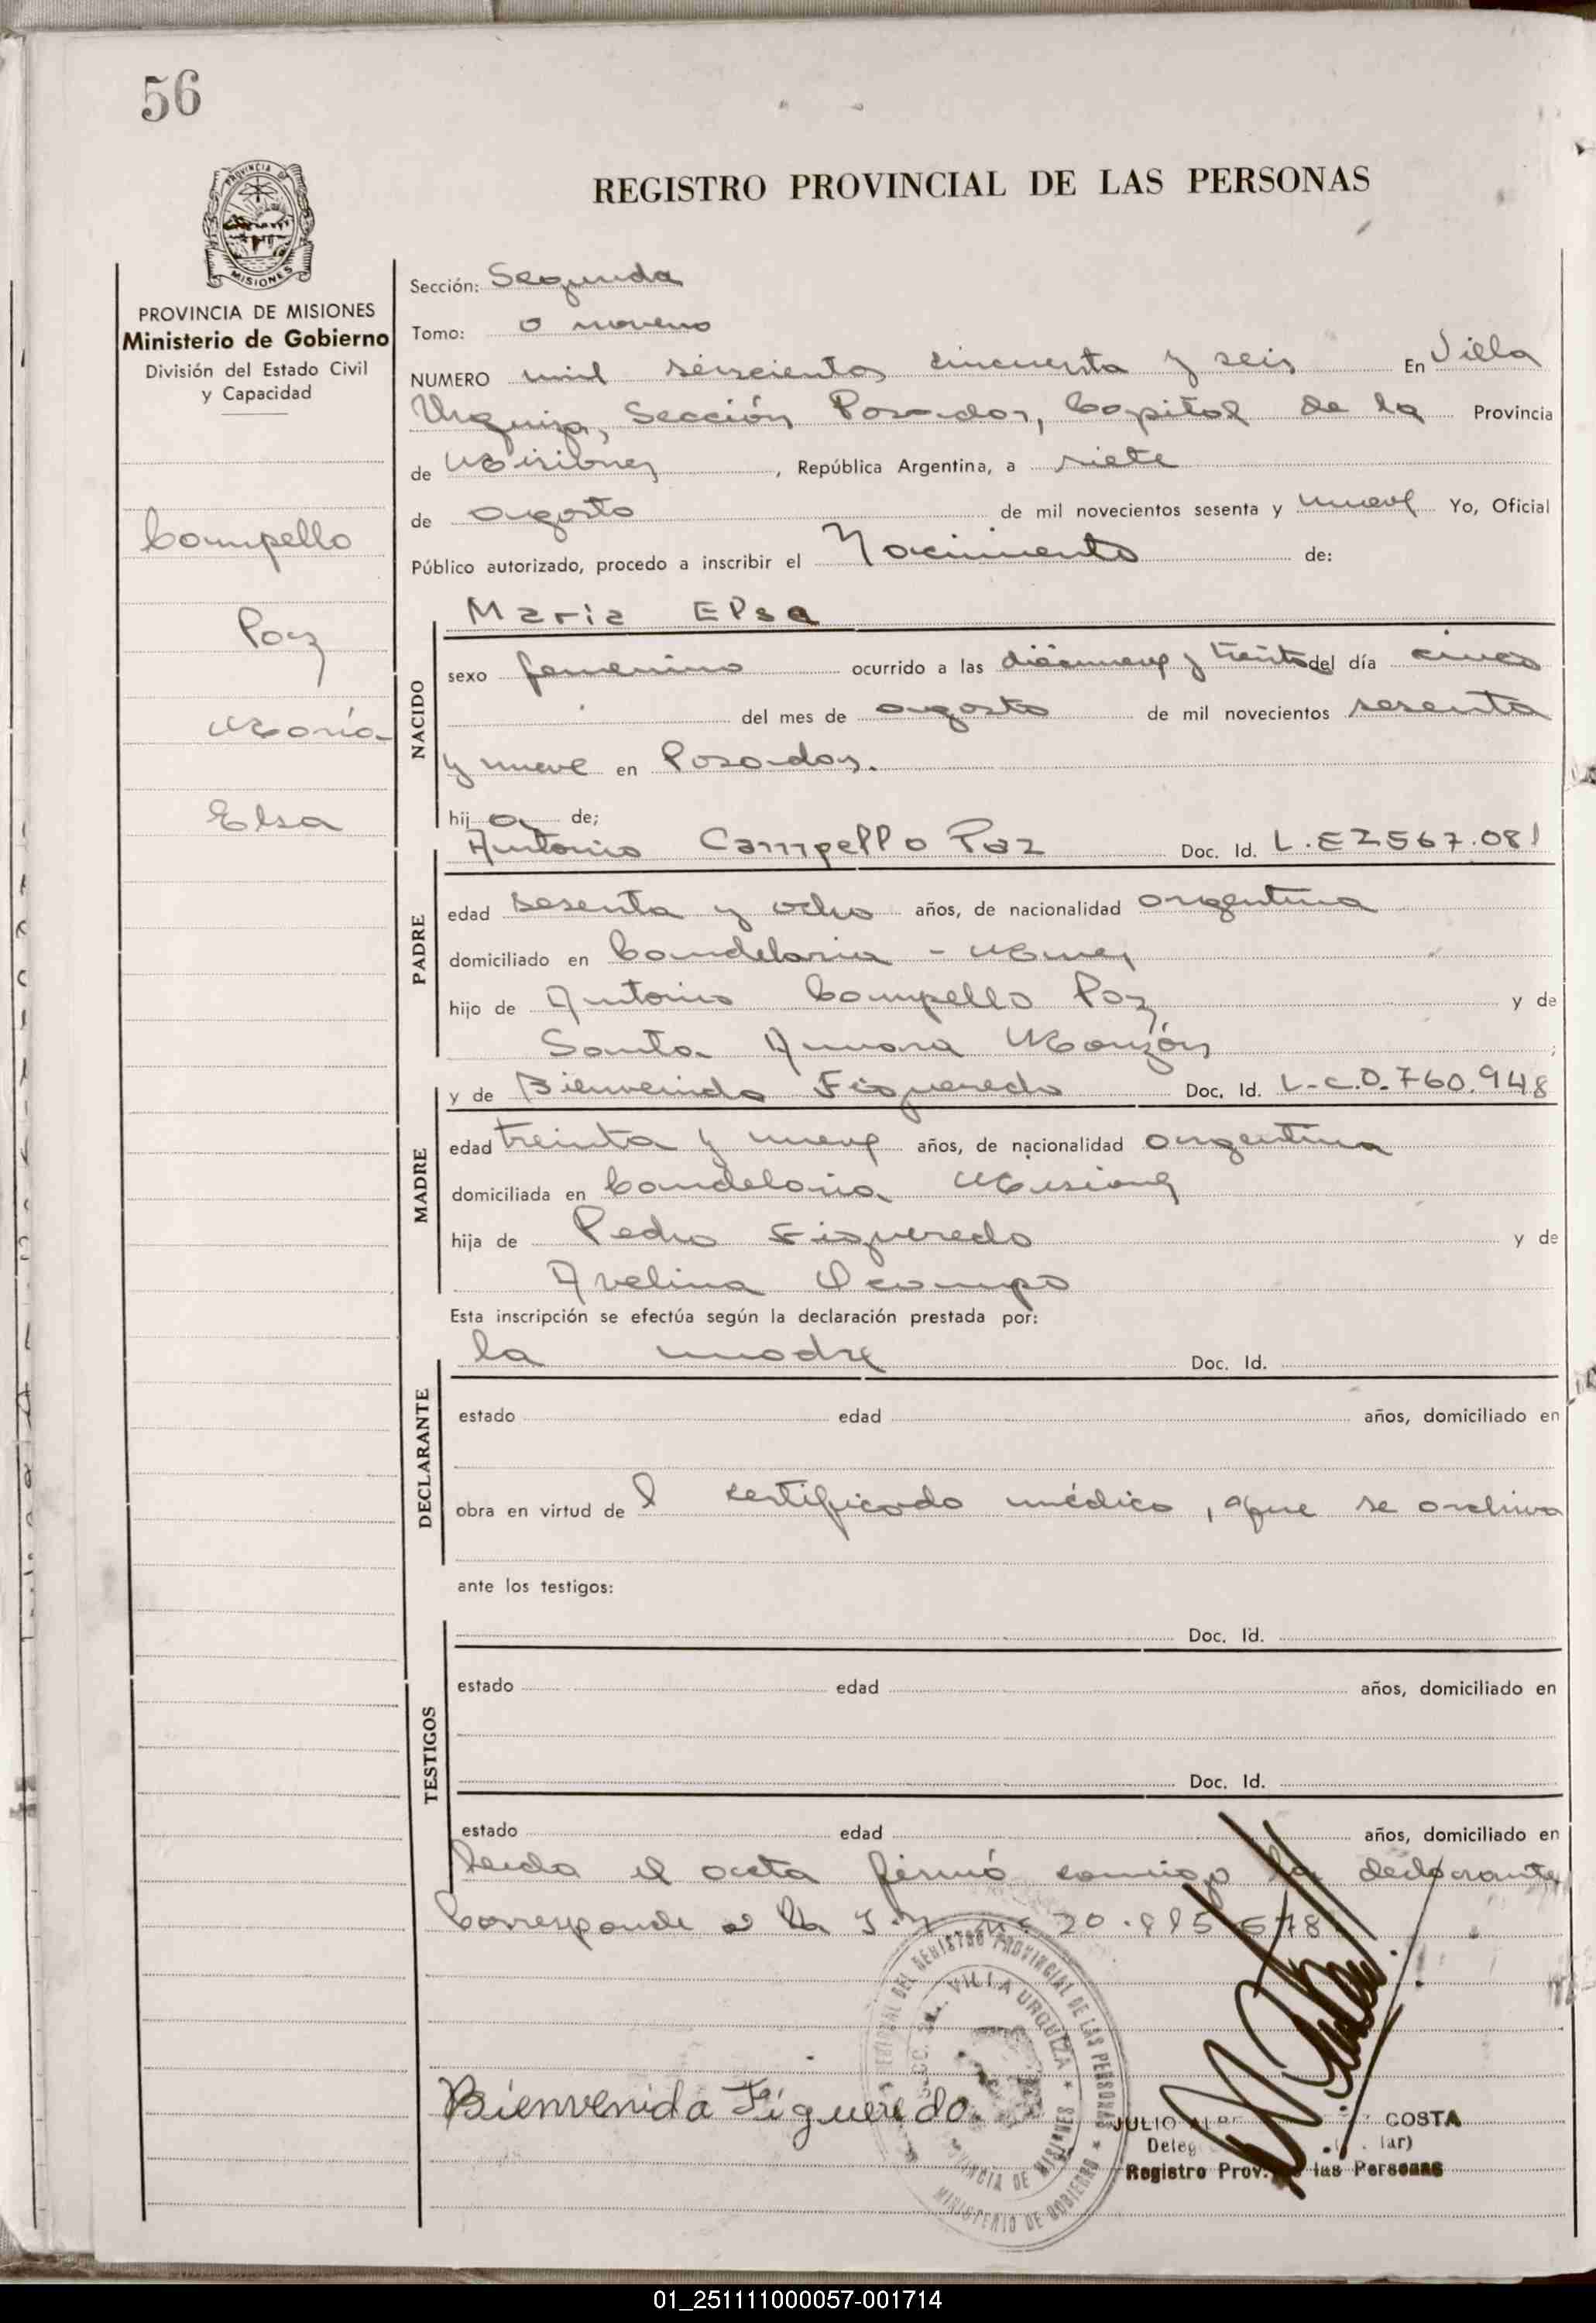 56
PROVINCIA DE
MISIONES
REGISTRO PROVINCIAL DE LAS PERSONAS
PROVINCIA DE MISIONES
Ministerio de Gobierno
División del Estado Civil
y Capacidad
Campello
Paz
María
Elsa
Sección: Segunda
Tomo: noveno
NUMERO mil seiscientos cincuenta y seis En Villa
Urquiza, Sección Posadas, Capital de la Provincia
de Misiones, República Argentina, a siete
de agosto de mil novecientos sesenta y nueve Yo, Oficial
Público autorizado, procedo a inscribir el Nacimiento de:
NACIDO
Maria Elsa
sexo femenino ocurrido a las diecinueve y treinta del día cinco
del mes de agosto de mil novecientos sesenta
y nueve en Posadas.
hij a de;
PADRE
Antonio Campello Paz Doc. Id. L.E 2567.081
edad sesenta y ocho años, de nacionalidad argentina
domiciliado en Candelaria - Mnes
hijo de Antonio Campello Paz y de
Santa Monzón ;
MADRE
y de Bienvenida Figueredo Doc. Id. L.C.0.760.948
edad treinta y nueve años, de nacionalidad argentina
domiciliada en Candelaria Misiones
hija de Pedro Figueredo y de
Avelina Ocampo
Esta inscripción se efectúa según la declaración prestada por:
DECLARANTE
la madre Doc. Id.
estado edad años, domiciliado en
obra en virtud de l certificado médico, que se archiva
ante los testigos:
TESTIGOS
Doc. Id.
estado edad años, domiciliado en
Doc. Id.
estado edad años, domiciliado en
Leida el acta firmó conmigo la declarante
Corresponde a la
Bienvenida Figueredo
REGISTRO PROVINCIAL DE LAS PERSONAS
VILLA URQUIZA
PROVINCIA DE MISIONES
MINISTERIO DE GOBIERNO
JULIO COSTA
Registro Prov. las Personas
01_251111000057-001714